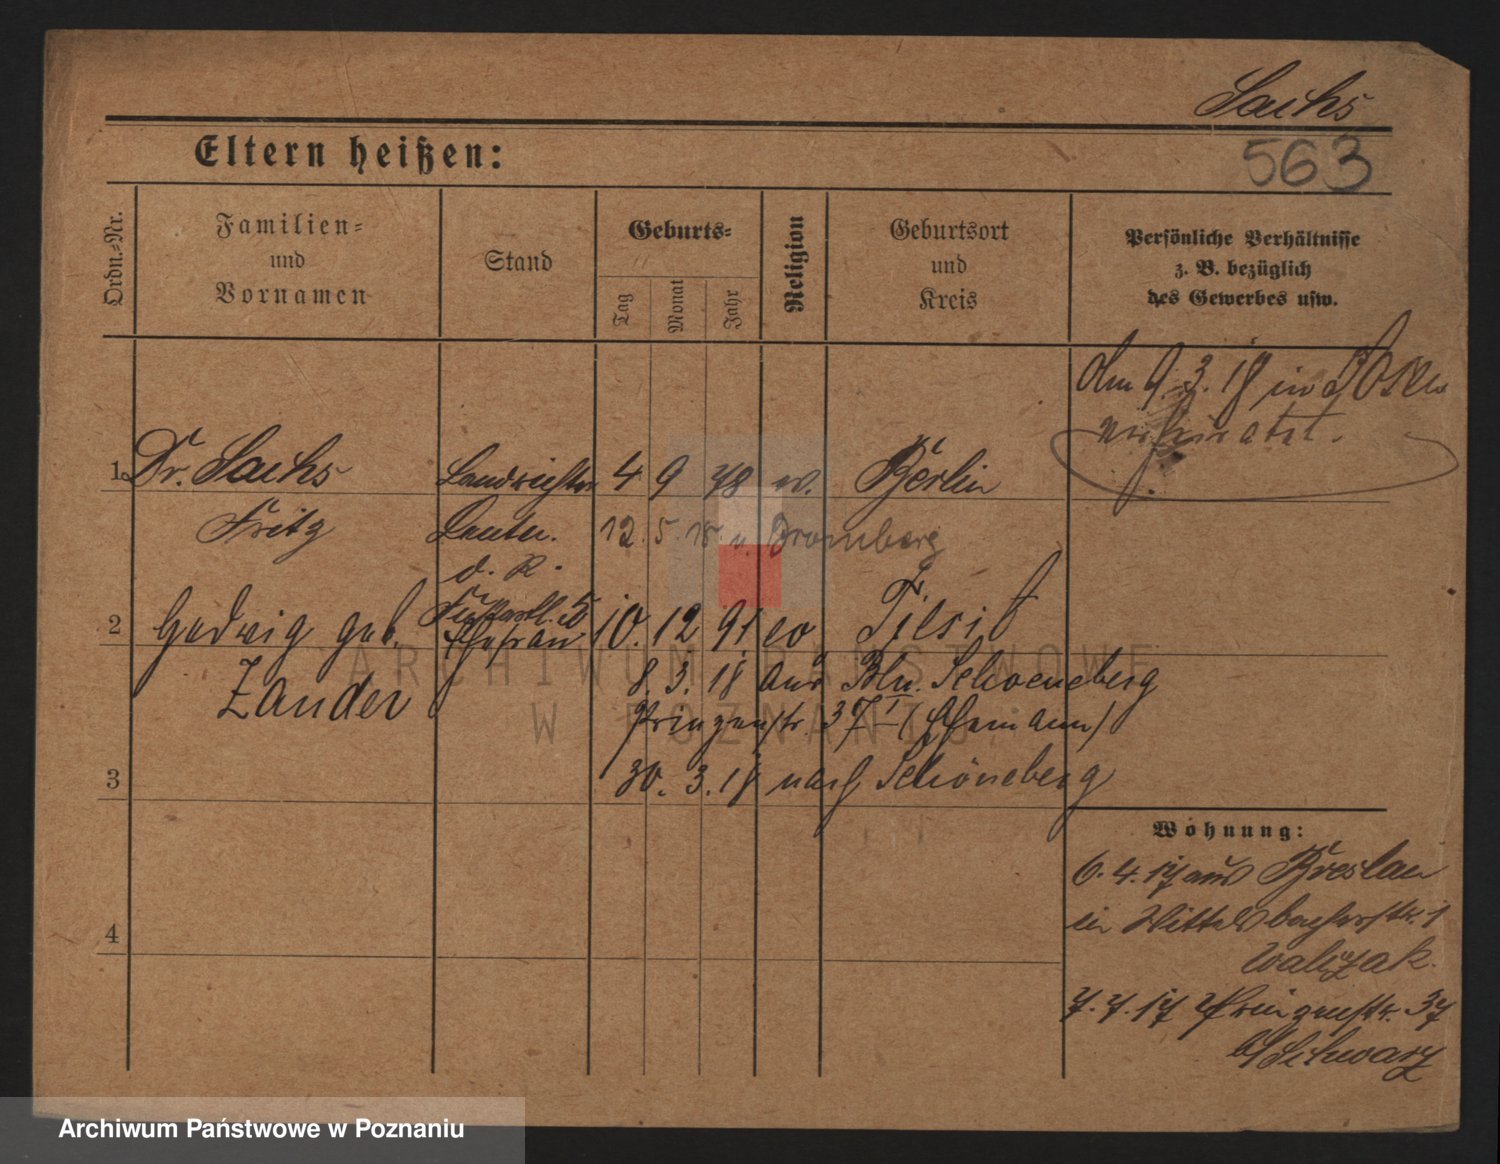 Sachs
Eltern heißen:
563
Ordn.=Nr.
Familien=
und
Vornamen
Stand
Geburts=
Tag
Monat
Jahr
Religion
Geburtsort
und
Kreis
Persönliche Verhältnisse
z. B. bezüglich
des Gewerbes usw.
Am 9.3.18 in Posen
verheiratet.
1. Dr. Sachs Landrichter 4 9 78 ev. Berlin
Fritz Leutn. 12. 5. 18 n. Bromberg
d. R.
2 Hedwig geb. Ehefrau 10. 12 91 ev Tilsit
Zander
8. 3. 18 aus Bln. Schoeneberg
Prinzenstr. 37 I (Ehemann)
3 30. 3. 18 nach Schöneberg
Wohnung:
6. 4. 17 aus Breslau
in Wittelsbacherstr. 1
Walczak.
4
7. 7. 17 Prinzenstr. 37
b/Schwarz
ARCHIWUM PAŃSTWOWE
W POZNANIU
Archiwum Państwowe w Poznaniu